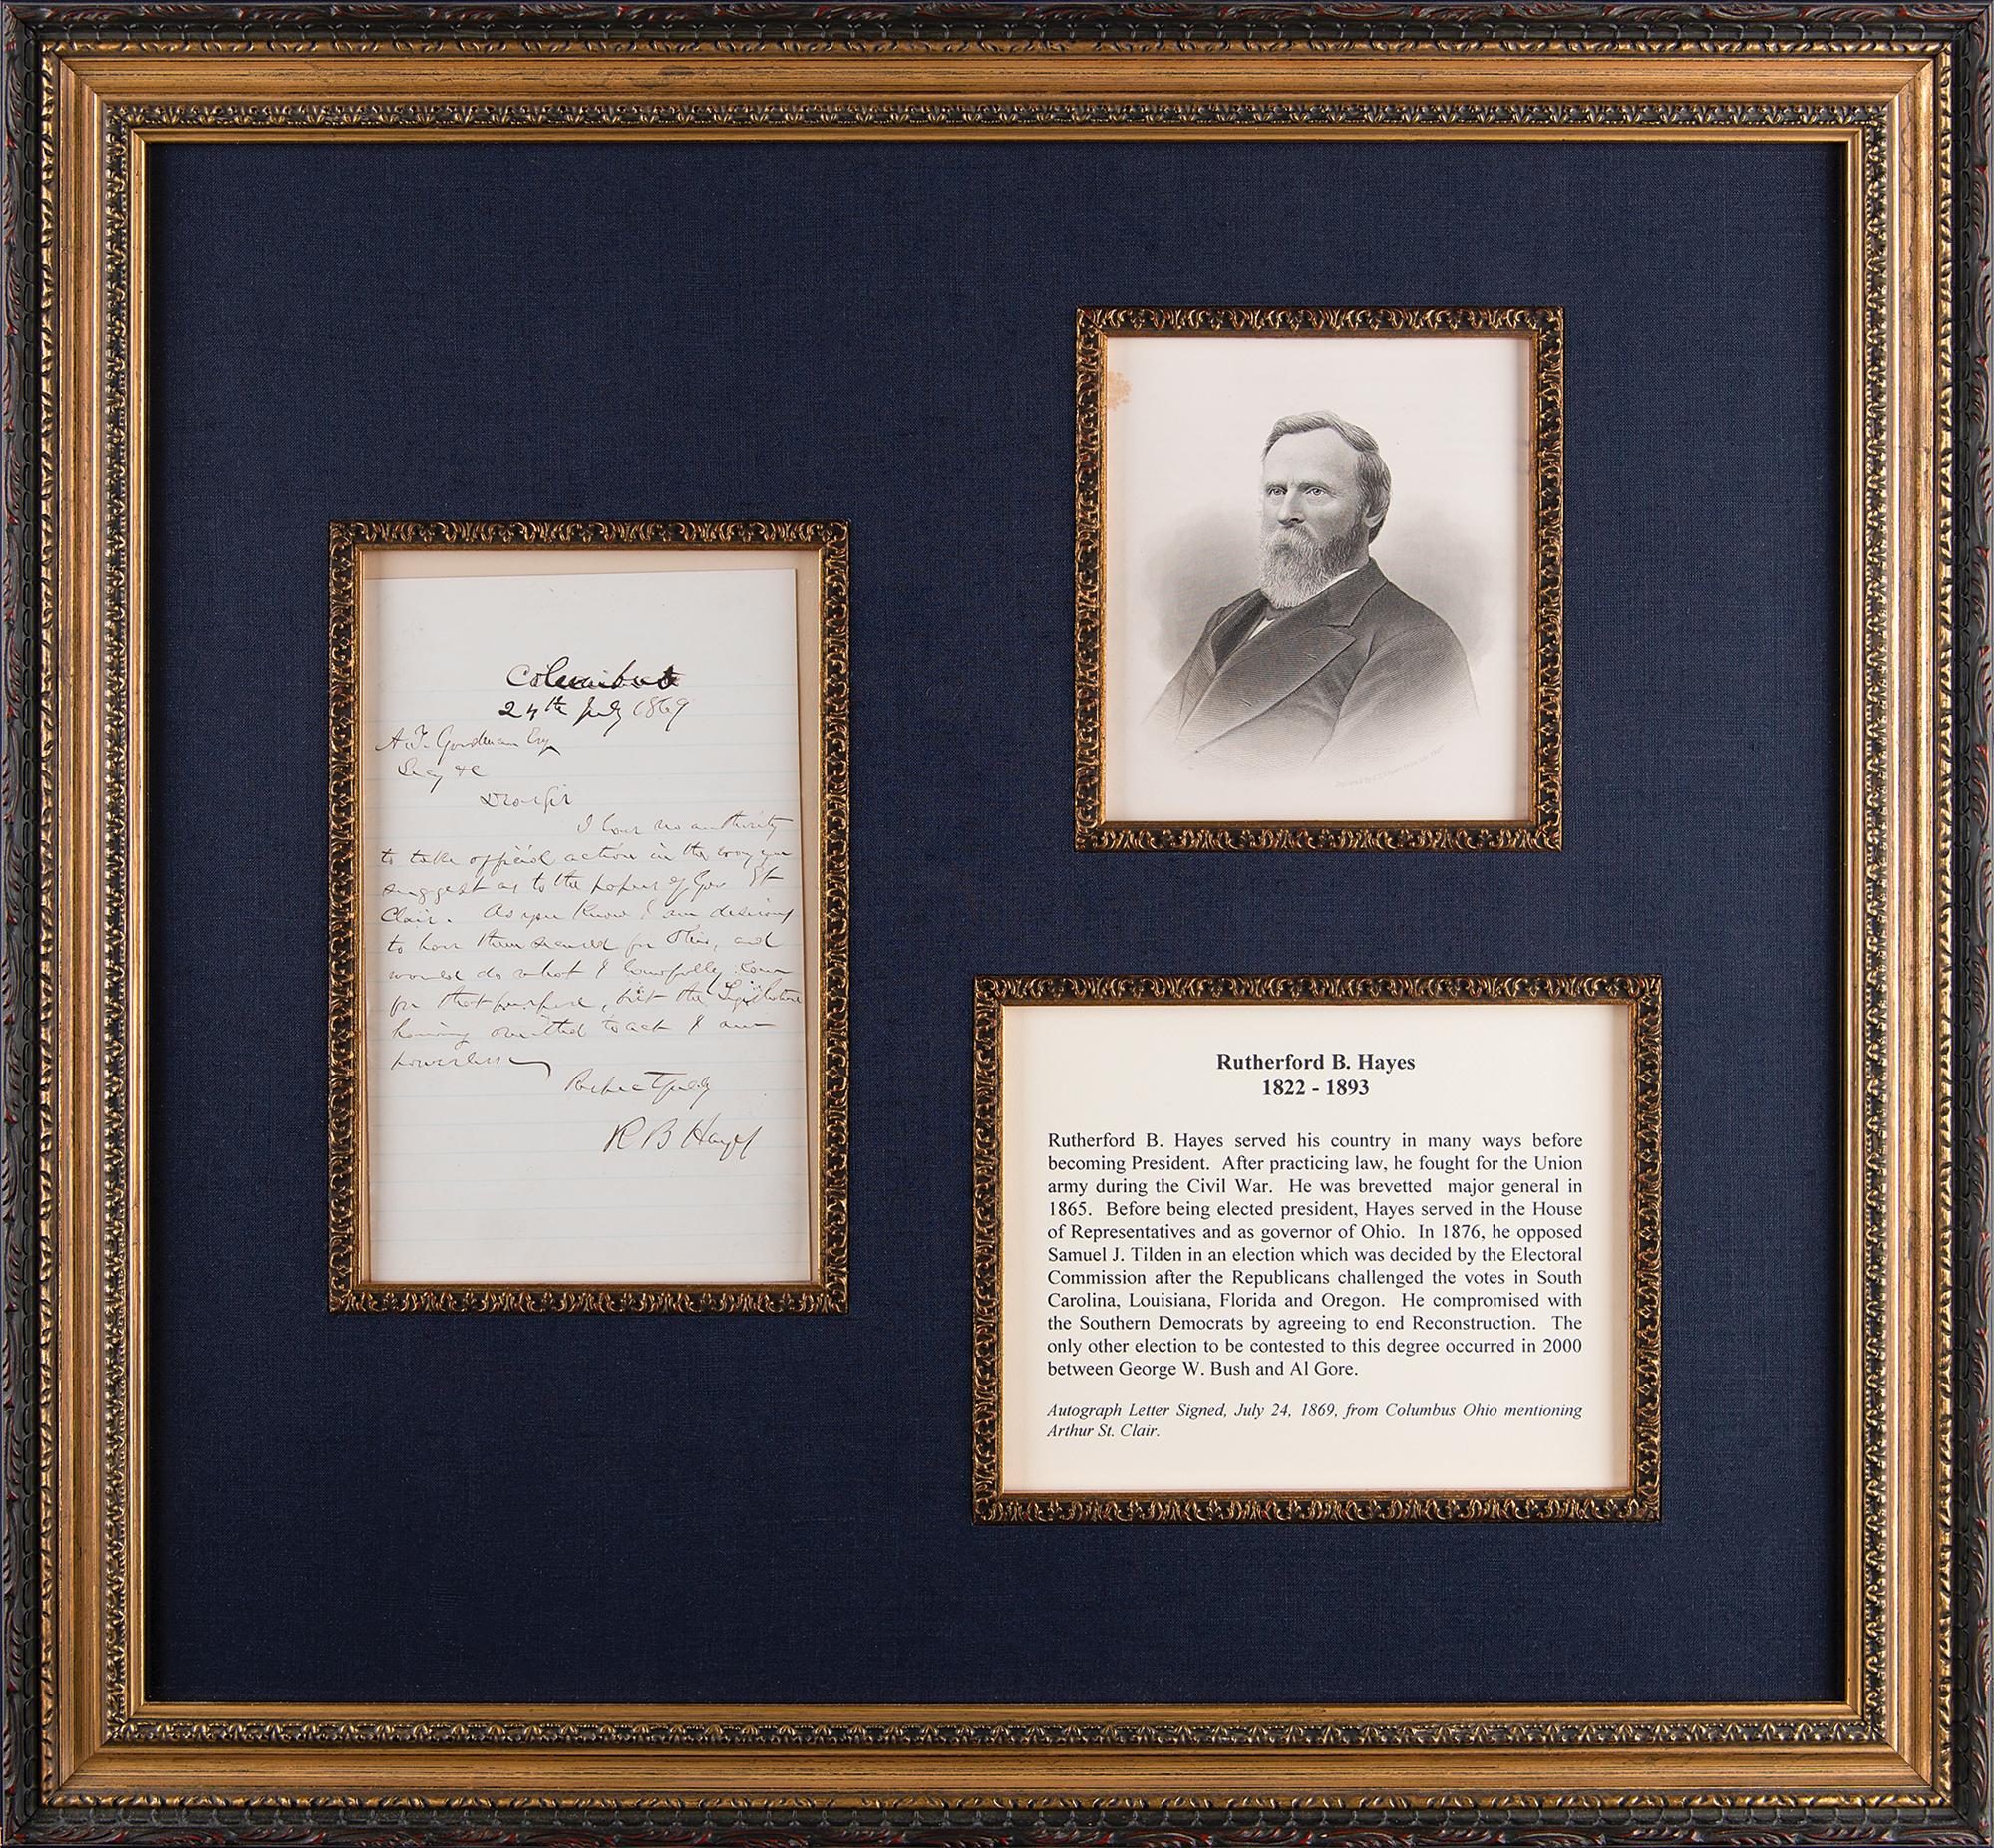 Columbus
24th July 1869
A. T. Goodman Esq
Secy &c
Dear Sir
I have no authority
to take official action in the way you
suggest as to the papers of Gov St
Clair. As you know I am desirous
to have them secured for Ohio, and
would do what I lawfully can
for that purpose, but the Legislature
having omitted to act I am
powerless
Respectfully
R B Hayes
Engraved by
Rutherford B. Hayes
1822 - 1893
Rutherford B. Hayes served his country in many ways before
becoming President. After practicing law, he fought for the Union
army during the Civil War. He was brevetted major general in
1865. Before being elected president, Hayes served in the House
of Representatives and as governor of Ohio. In 1876, he opposed
Samuel J. Tilden in an election which was decided by the Electoral
Commission after the Republicans challenged the votes in South
Carolina, Louisiana, Florida and Oregon. He compromised with
the Southern Democrats by agreeing to end Reconstruction. The
only other election to be contested to this degree occurred in 2000
between George W. Bush and Al Gore.
Autograph Letter Signed, July 24, 1869, from Columbus Ohio mentioning
Arthur St. Clair.